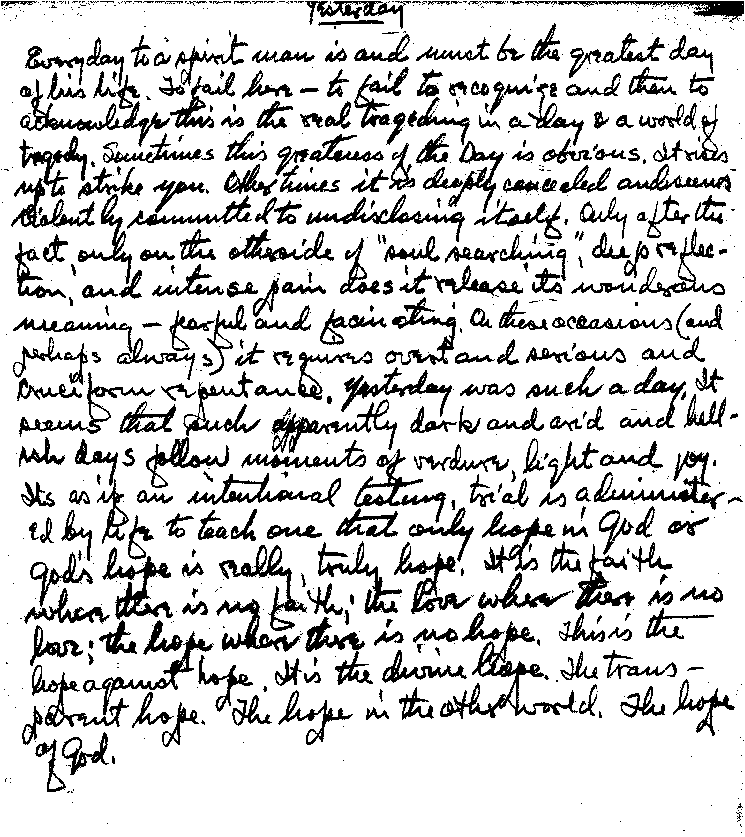 Yesterday
Everyday to a spirit man is and must be the greatest day
of his life. To fail here — to fail to recognize and then to
acknowledge this is the real tragedy in a day & a world of
tragedy. Sometimes this greatness of the Day is obvious. It rises
up to strike you. Other times it is deeply concealed and seems
violently committed to undisclosing itself. Only after the
fact, only on the otherside of "soul searching", deep reflec-
tion, and intense pain does it release its wonderous
meaning — fearful and facinating. On these occasions (and
perhaps always) it requires overt and serious and
cruciform repentance. Yesterday was such a day. It
seems that such apparently dark and arid and hell-
ish days follow moments of verdure, light and joy.
Its as if an intentional testing, trial is administer-
ed by life to teach one that only hope in God or
God's hope is really, truly hope. It is the faith
where there is no faith; the love where there is no
love; the hope where there is no hope. This is the
hope against hope. It is the divine hope. The trans-
parent hope. The hope in the other world. The hope
of God.